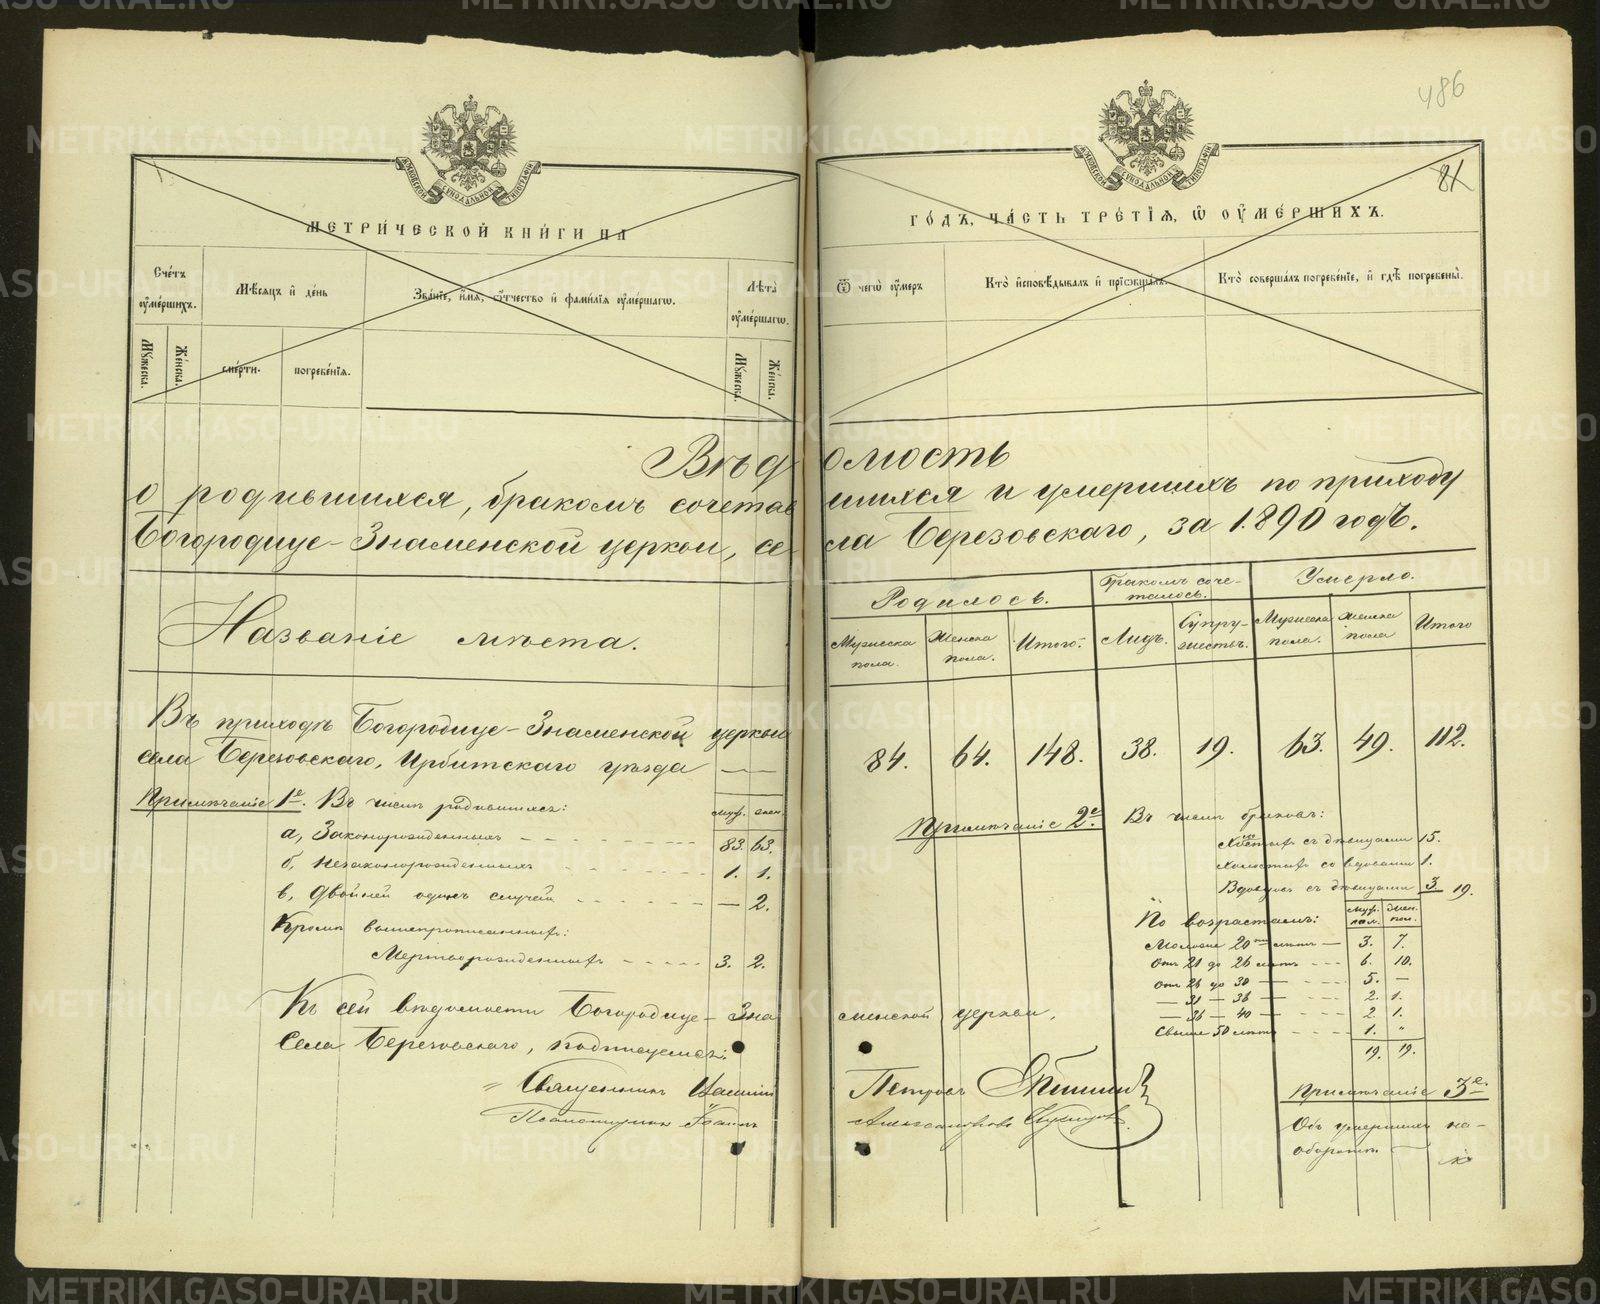 486
81
МЕТРИ́ЧЕСКОЙ КНИ́ГИ НА
ГО́ДЪ, ЧА́СТЬ ТРЕ́ТІЯ, Ѡ ОУМЕ́РШИХЪ.
Сче́тъ оуме́ршихъ.
Мѣсяцъ и де́нь
Зва́ніе, и́мя, о́тчество и фами́лія оуме́ршагѡ.
Лѣта̀ оуме́ршагѡ.
Ѿ чегѡ̀ оу́меръ
Кто̀ исповѣ́дывалъ и прїобща́лъ.
Кто̀ соверша́лъ погребе́ніе, и гдѣ̀ погребены̀.
Мꙋ́жеска.
Же́нска.
сме́рти.
погребе́нія.
Мꙋ́жеска.
Же́нска.
Вѣдомость
о родившихся, бракомъ сочетавшихся и умершихъ по приходу
Богородице-Знаменской церкви, села Березовскаго, за 1890 годъ.
Названіе мѣста.
Родилось.
Бракомъ соче-
талось.
Умерло.
Мужеска пола.
Женска пола.
Итого.
Лицъ.
Супру-
жествъ.
Мужеска пола.
Женска пола
Итого
Въ приходѣ Богородице-Знаменской церкви
села Березовскаго, Ирбитскаго уѣзда — —
84. 64. 148. 38. 19. 63. 49. 112.
Примѣчаніе 1е. Въ числѣ родившихся:
муж. жен.
а, Законорожденныхъ 83. 63.
б, незаконорожденныхъ 1. 1.
в, двойней одинъ случай — 2.
Кромѣ вышепрописанныхъ:
Мертворожденныхъ 3. 2.
Примѣчаніе 2е.
Въ числѣ браковъ:
Холостыхъ съ дѣвицами 15.
Холостыхъ со вдовами 1.
Вдовцовъ съ дѣвицами 3. 19.
По возрастамъ:
муж. пол. жен. пол.
Моложе 20ти лѣтъ — 3. 7.
Отъ 21 до 26 лѣтъ 6. 10.
Отъ 26 до 30 — 5. —
— 31 — 36 — 2. 1.
— 36 — 40 — 2. 1.
Свыше 50 лѣтъ 1. "
19. 19.
Къ сей вѣдомости Богородице-Знаменской церкви,
Села Березовскаго, подписуемся:
Священникъ Василій Петровъ
Псаломщикъ Іоаннъ Александровъ
Примѣчаніе 3е.
Объ умершихъ на-
оборотѣ